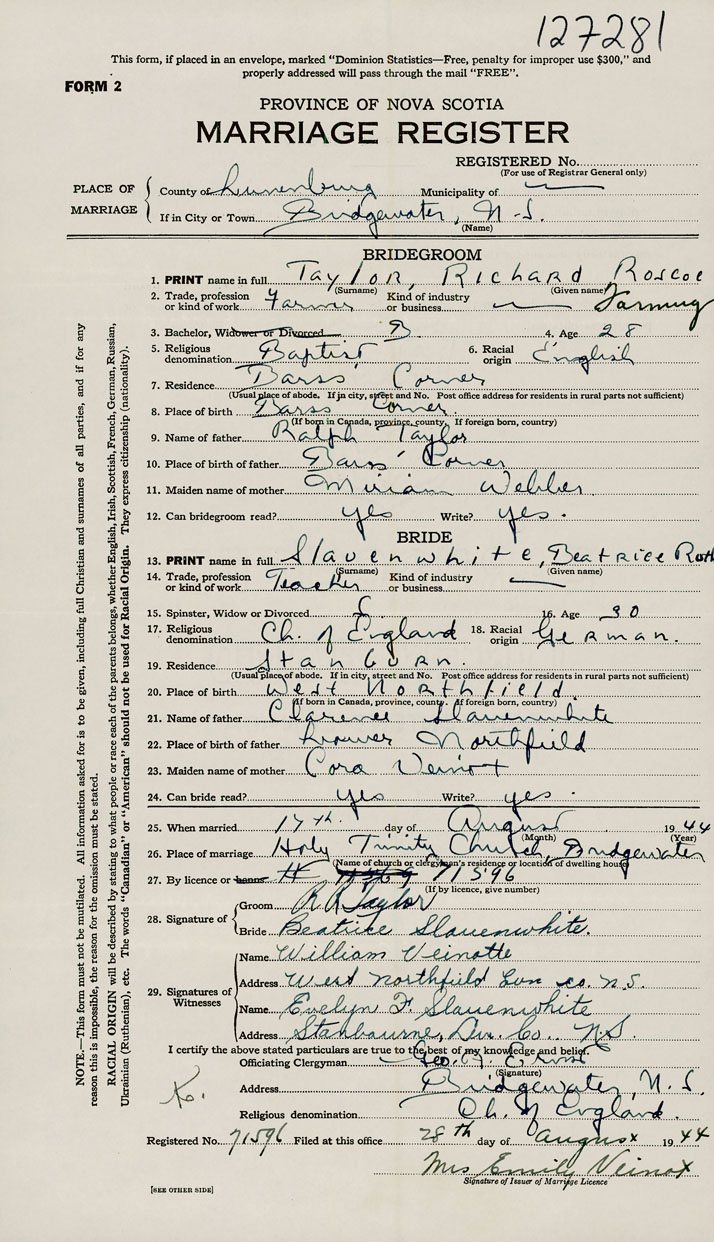 127281
This form, if placed in an envelope, marked "Dominion Statistics—Free, penalty for improper use $300," and
properly addressed will pass through the mail "FREE".
FORM 2
PROVINCE OF NOVA SCOTIA
MARRIAGE REGISTER
REGISTERED No.
(For use of Registrar General only)
PLACE OF MARRIAGE
County of Lunenburg Municipality of —
If in City or Town Bridgewater, N.S.
(Name)
BRIDEGROOM
1. PRINT name in full Taylor, Richard Roscoe
(Surname) (Given name)
2. Trade, profession or kind of work Farmer Kind of industry or business — Farming
3. Bachelor, Widower or Divorced B 4. Age 28
5. Religious denomination Baptist 6. Racial origin English
7. Residence Barss' Corner
(Usual place of abode. If in city, street and No. Post office address for residents in rural parts not sufficient)
8. Place of birth Barss Corner
(If born in Canada, province, county. If foreign born, country)
9. Name of father Ralph Taylor
10. Place of birth of father Barss' Corner
11. Maiden name of mother Miriam Webber
12. Can bridegroom read? yes Write? yes.
BRIDE
13. PRINT name in full Slauenwhite, Beatrice Ruth
(Surname) (Given name)
14. Trade, profession or kind of work Teacher Kind of industry or business —
15. Spinster, Widow or Divorced S 16. Age 30
17. Religious denomination Ch. of England 18. Racial origin German.
19. Residence Stanburn.
(Usual place of abode. If in city, street and No. Post office address for residents in rural parts not sufficient)
20. Place of birth West Northfield.
(If born in Canada, province, county. If foreign born, country)
21. Name of father Clarence Slauenwhite
22. Place of birth of father Lower Northfield
23. Maiden name of mother Cora Veinot
24. Can bride read? yes Write? yes.
25. When married 17th. day of August 1944
(Month) (Year)
26. Place of marriage Holy Trinity Church, Bridgewater
(Name of church or clergyman's residence or location of dwelling house)
27. By licence or banns # 71596
(If by licence, give number)
28. Signature of
Groom R R Taylor
Bride Beatrice Slauenwhite.
29. Signatures of Witnesses
Name William Veinotte
Address West Northfield Lun co. N.S.
Name Evelyn F. Slauenwhite
Address Stanbourne, Lun. Co. N.S.
I certify the above stated particulars are true to the best of my knowledge and belief.
Officiating Clergyman Geo.
(Signature)
Address Bridgewater, N.S.
Religious denomination Ch. of England.
Registered No. 71596 Filed at this office 28th day of August 1944
Mrs Emily Veinot
Signature of Issuer of Marriage Licence
[SEE OTHER SIDE]
NOTE.—This form must not be mutilated. All information asked for is to be given, including full Christian and surnames of all parties, and if for any
reason this is impossible, the reason for the omission must be stated.
RACIAL ORIGIN will be described by stating to what people or race each of the parents belongs, whether English, Irish, Scottish, French, German, Russian,
Ukrainian (Ruthenian), etc. The words "Canadian" or "American" should not be used for Racial Origin. They express citizenship (nationality).